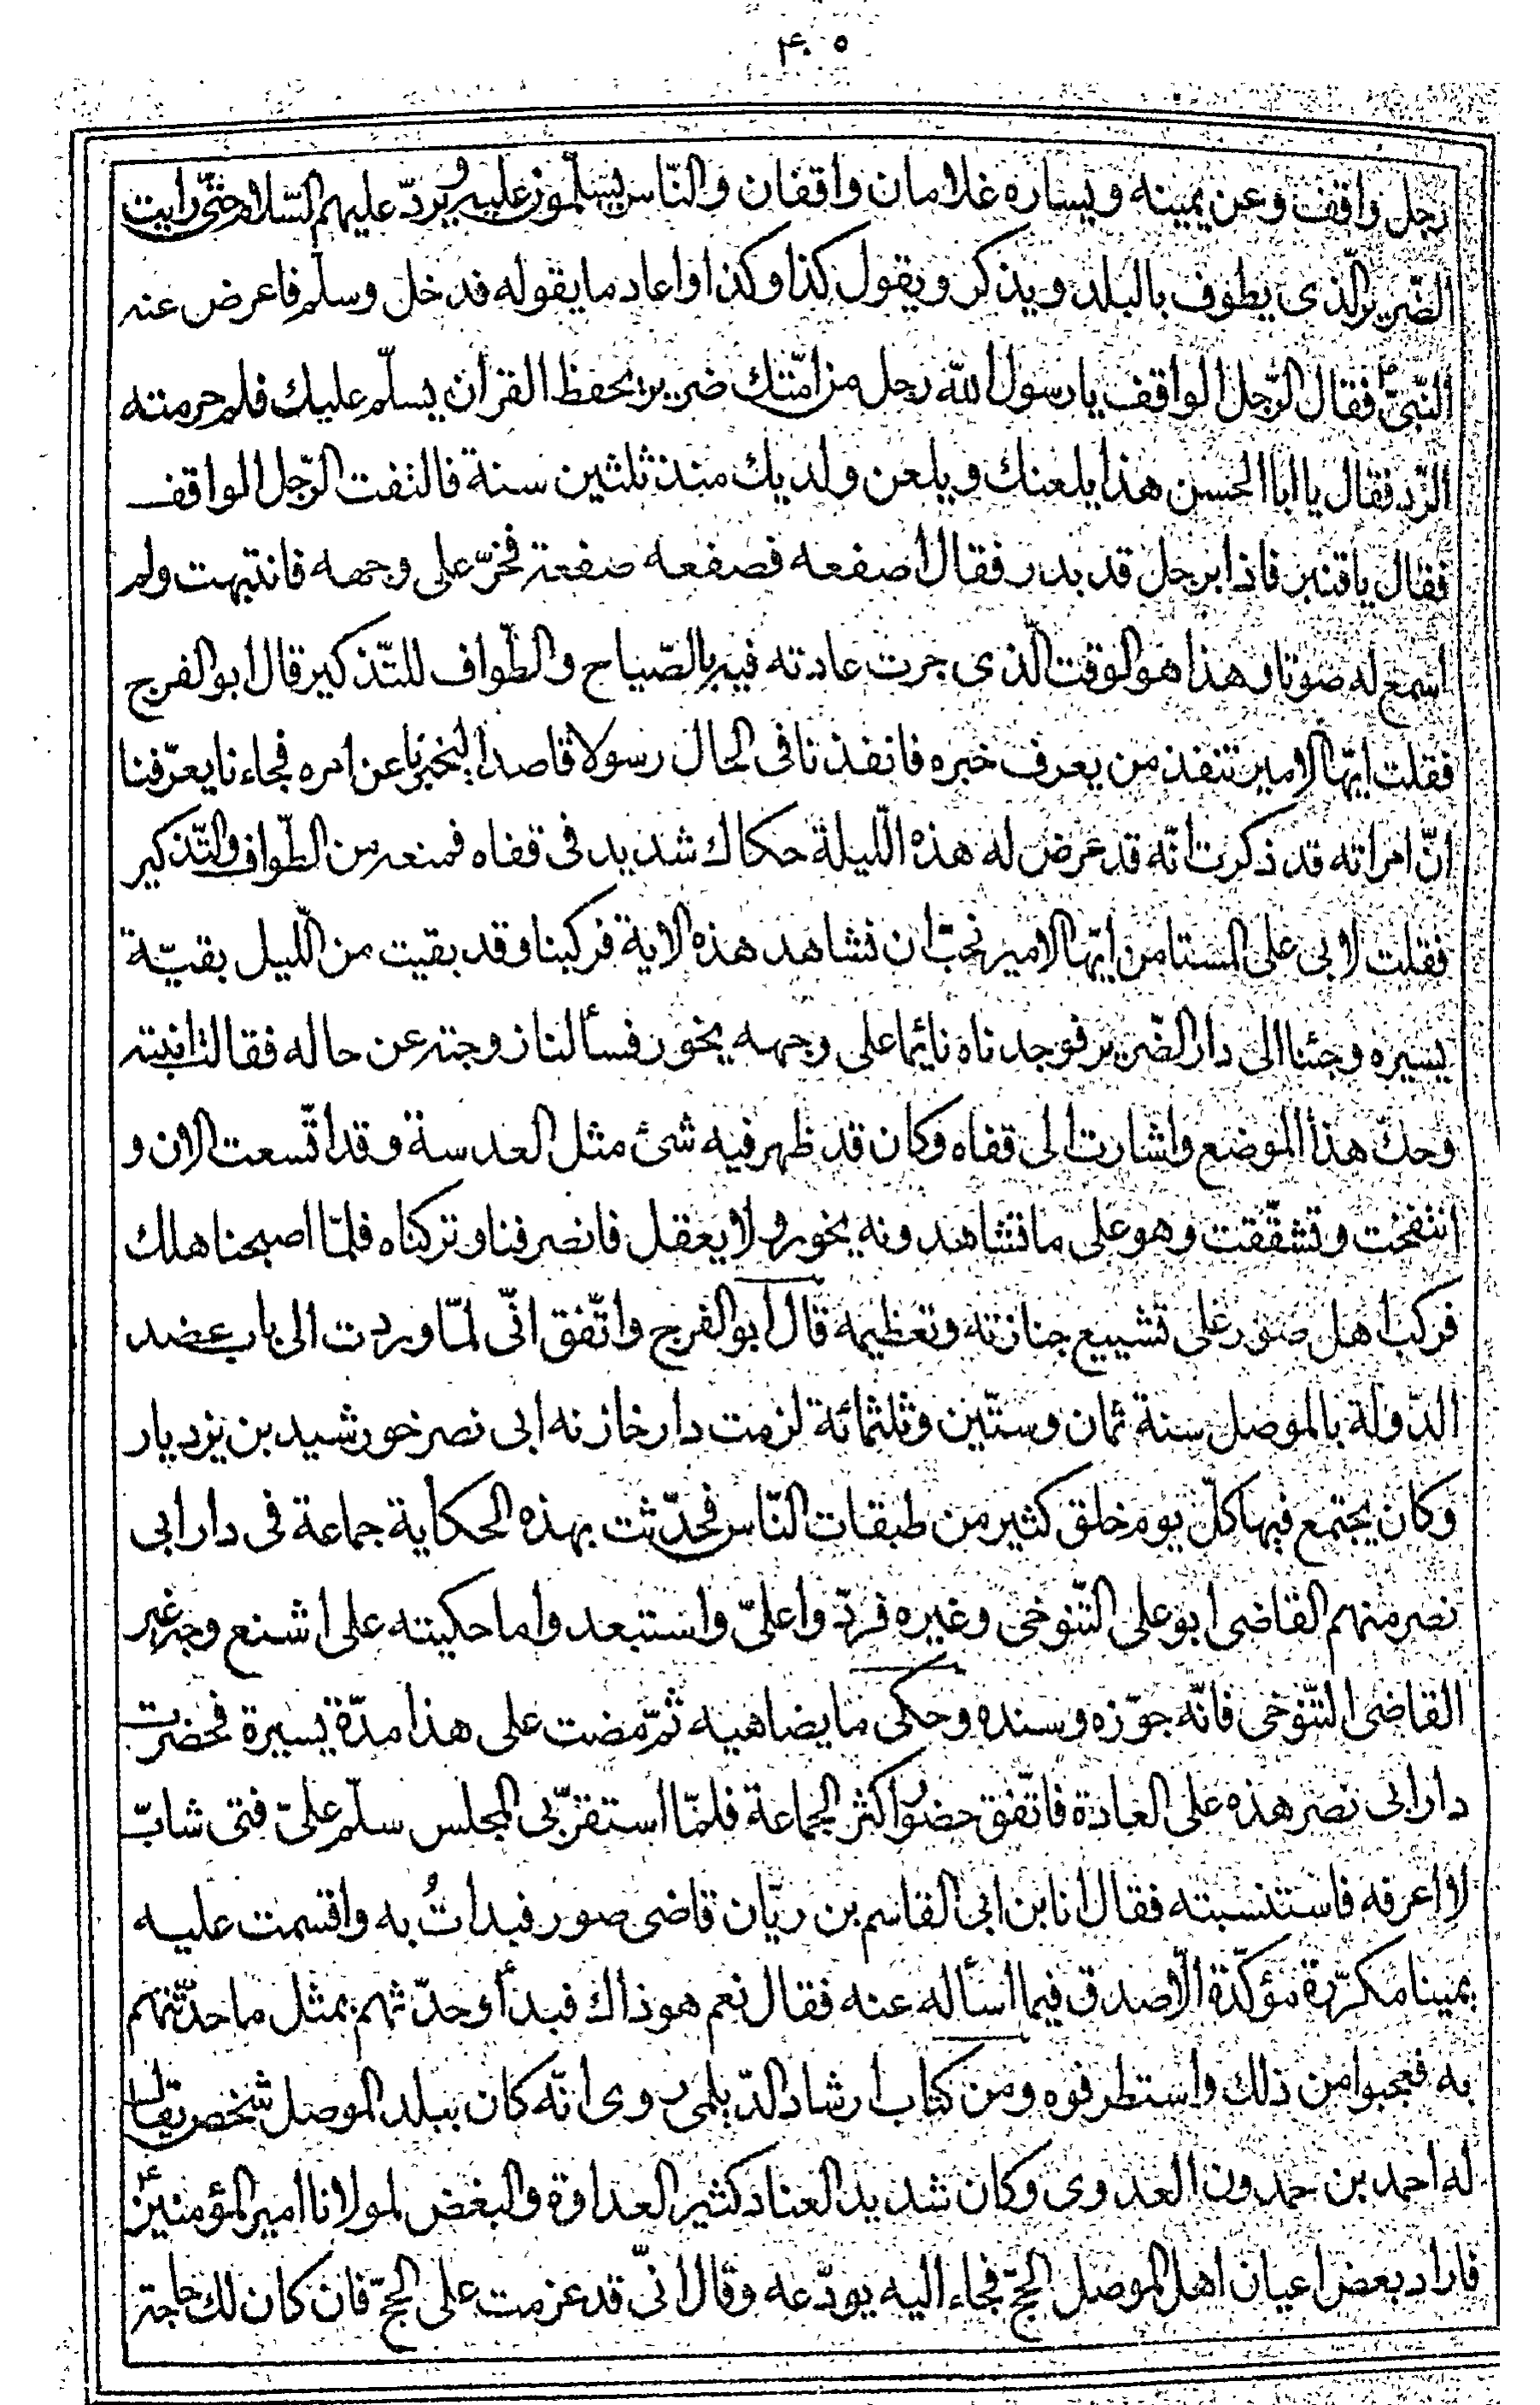 ۴۰۵
رجل واقف وعن يمينه ويساره غلامان واقفان والنّاس يسلّمون عليه ويردّ عليهم السّلام حتّى رأيت
الضّرير الّذى يطوف بالبلد ويذكر ويقول كذا وكذا واعاد ما يقوله فدخل وسلّم فاعرض عنه
النّبىّ ص فقال الرّجل الواقف يا رسول الله رجل من امّتك ضرير يحفظ القرآن يسلّم عليك فلم حرمته
الرّد فقال يا ابا الحسن هذا يلعنك ويلعن ولديك منذ ثلثين سنة فالتفت الرّجل الواقف
فقال يا قنبر فاذا برجل قد بدر فقال اصفعه فصفعه صفعة فخرّ على وجهه فانتبهت ولم
اسمع له صوتا وهذا هو الوقت الّذى جرت عادته فيه بالصّياح والطّواف للتّذكير قال ابو الفرج
فقلت ايّها الامير تنفذ من يعرف خبره فانفذنا فى الحال رسولا قاصدا ليخبرنا عن امره فجاءنا يعرّفنا
انّ امراته قد ذكرت انّه قد عرض له هذه اللّيلة حكاك شديد فى قفاه فمنعه من الطّواف والتّذكير
فقلت لابى على المستامن ايّها الامير نحبّ ان نشاهد هذه الاية فركبنا وقد بقيت من اللّيل بقيّة
يسيره وجئنا الى دار الضّرير فوجدناه نائما على وجهه يخور فسألنا زوجته عن حاله فقالت انتبه
وحكّ هذا الموضع واشارت الى قفاه وكان قد ظهر فيه شئ مثل العدسة وقد اتّسعت الان و
انتفخت وتشقّقت وهو على ما تشاهدونه يخور ولا يعقل فانصرفنا وتركناه فلمّا اصبحنا هلك
فركب اهل صور على تشييع جنازته وتعظيمه قال ابو الفرج واتّفق انّى لمّا وردت الى باب عضد
الدّولة بالموصل سنة ثمان وستّين وثلثمائة لزمت دار خازنه ابى نصر خورشيد بن يزديار
وكان يجتمع فيها كلّ يوم خلق كثير من طبقات النّاس فحدّثت بهذه الحكاية جماعة فى دار ابى
نصر منهم القاضى ابو على التّنوخى وغيره فردّوا علىّ واستبعدوا ما حكيته على اشنع وجه غير
القاضى التّنوخى فانّه جوّزه وسنده وحكى ما يضاهيه ثمّ مضت على هذا مدّة يسيرة فحضرت
دار ابى نصر هذه على العادة فاتّفق حضور اكثر الجماعة فلمّا استقرّ بى المجلس سلّم علىّ فتى شابّ
لا اعرفه فاستنسبته فقال انا ابن ابى القاسم بن ريّان قاضى صور فبداتُ به واقسمت عليه
يمينا مكرّرة مؤكّدة الّا صدق فيما اسأله عنه فقال نعم هو ذاك فبدأ وحدّثهم بمثل ما حدّثتهم
به فعجبوا من ذلك واستطرفوه ومن كتاب ارشاد الدّيلمى روى انّه كان ببلد الموصل شخص يقال
له احمد بن حمدون العدوى وكان شديد العناد كثير العداوة والبغض لمولانا امير المؤمنين ع
فاراد بعض اعيان اهل الموصل الحجّ فجاء اليه يودّعه وقال انّى قد عزمت على الحجّ فان كان لك حاجة